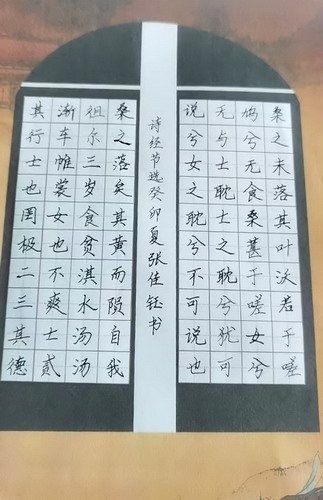 桑之未落其叶沃若于嗟
鸠兮无食桑葚于嗟女兮
无与士耽士之耽兮犹可
说兮女之耽兮不可说也
桑之落矣其黄而陨自我
徂尔三岁食贫淇水汤汤
渐车帷裳女也不爽士贰
其行士也罔极二三其德
诗经节选癸卯夏张佳钰书